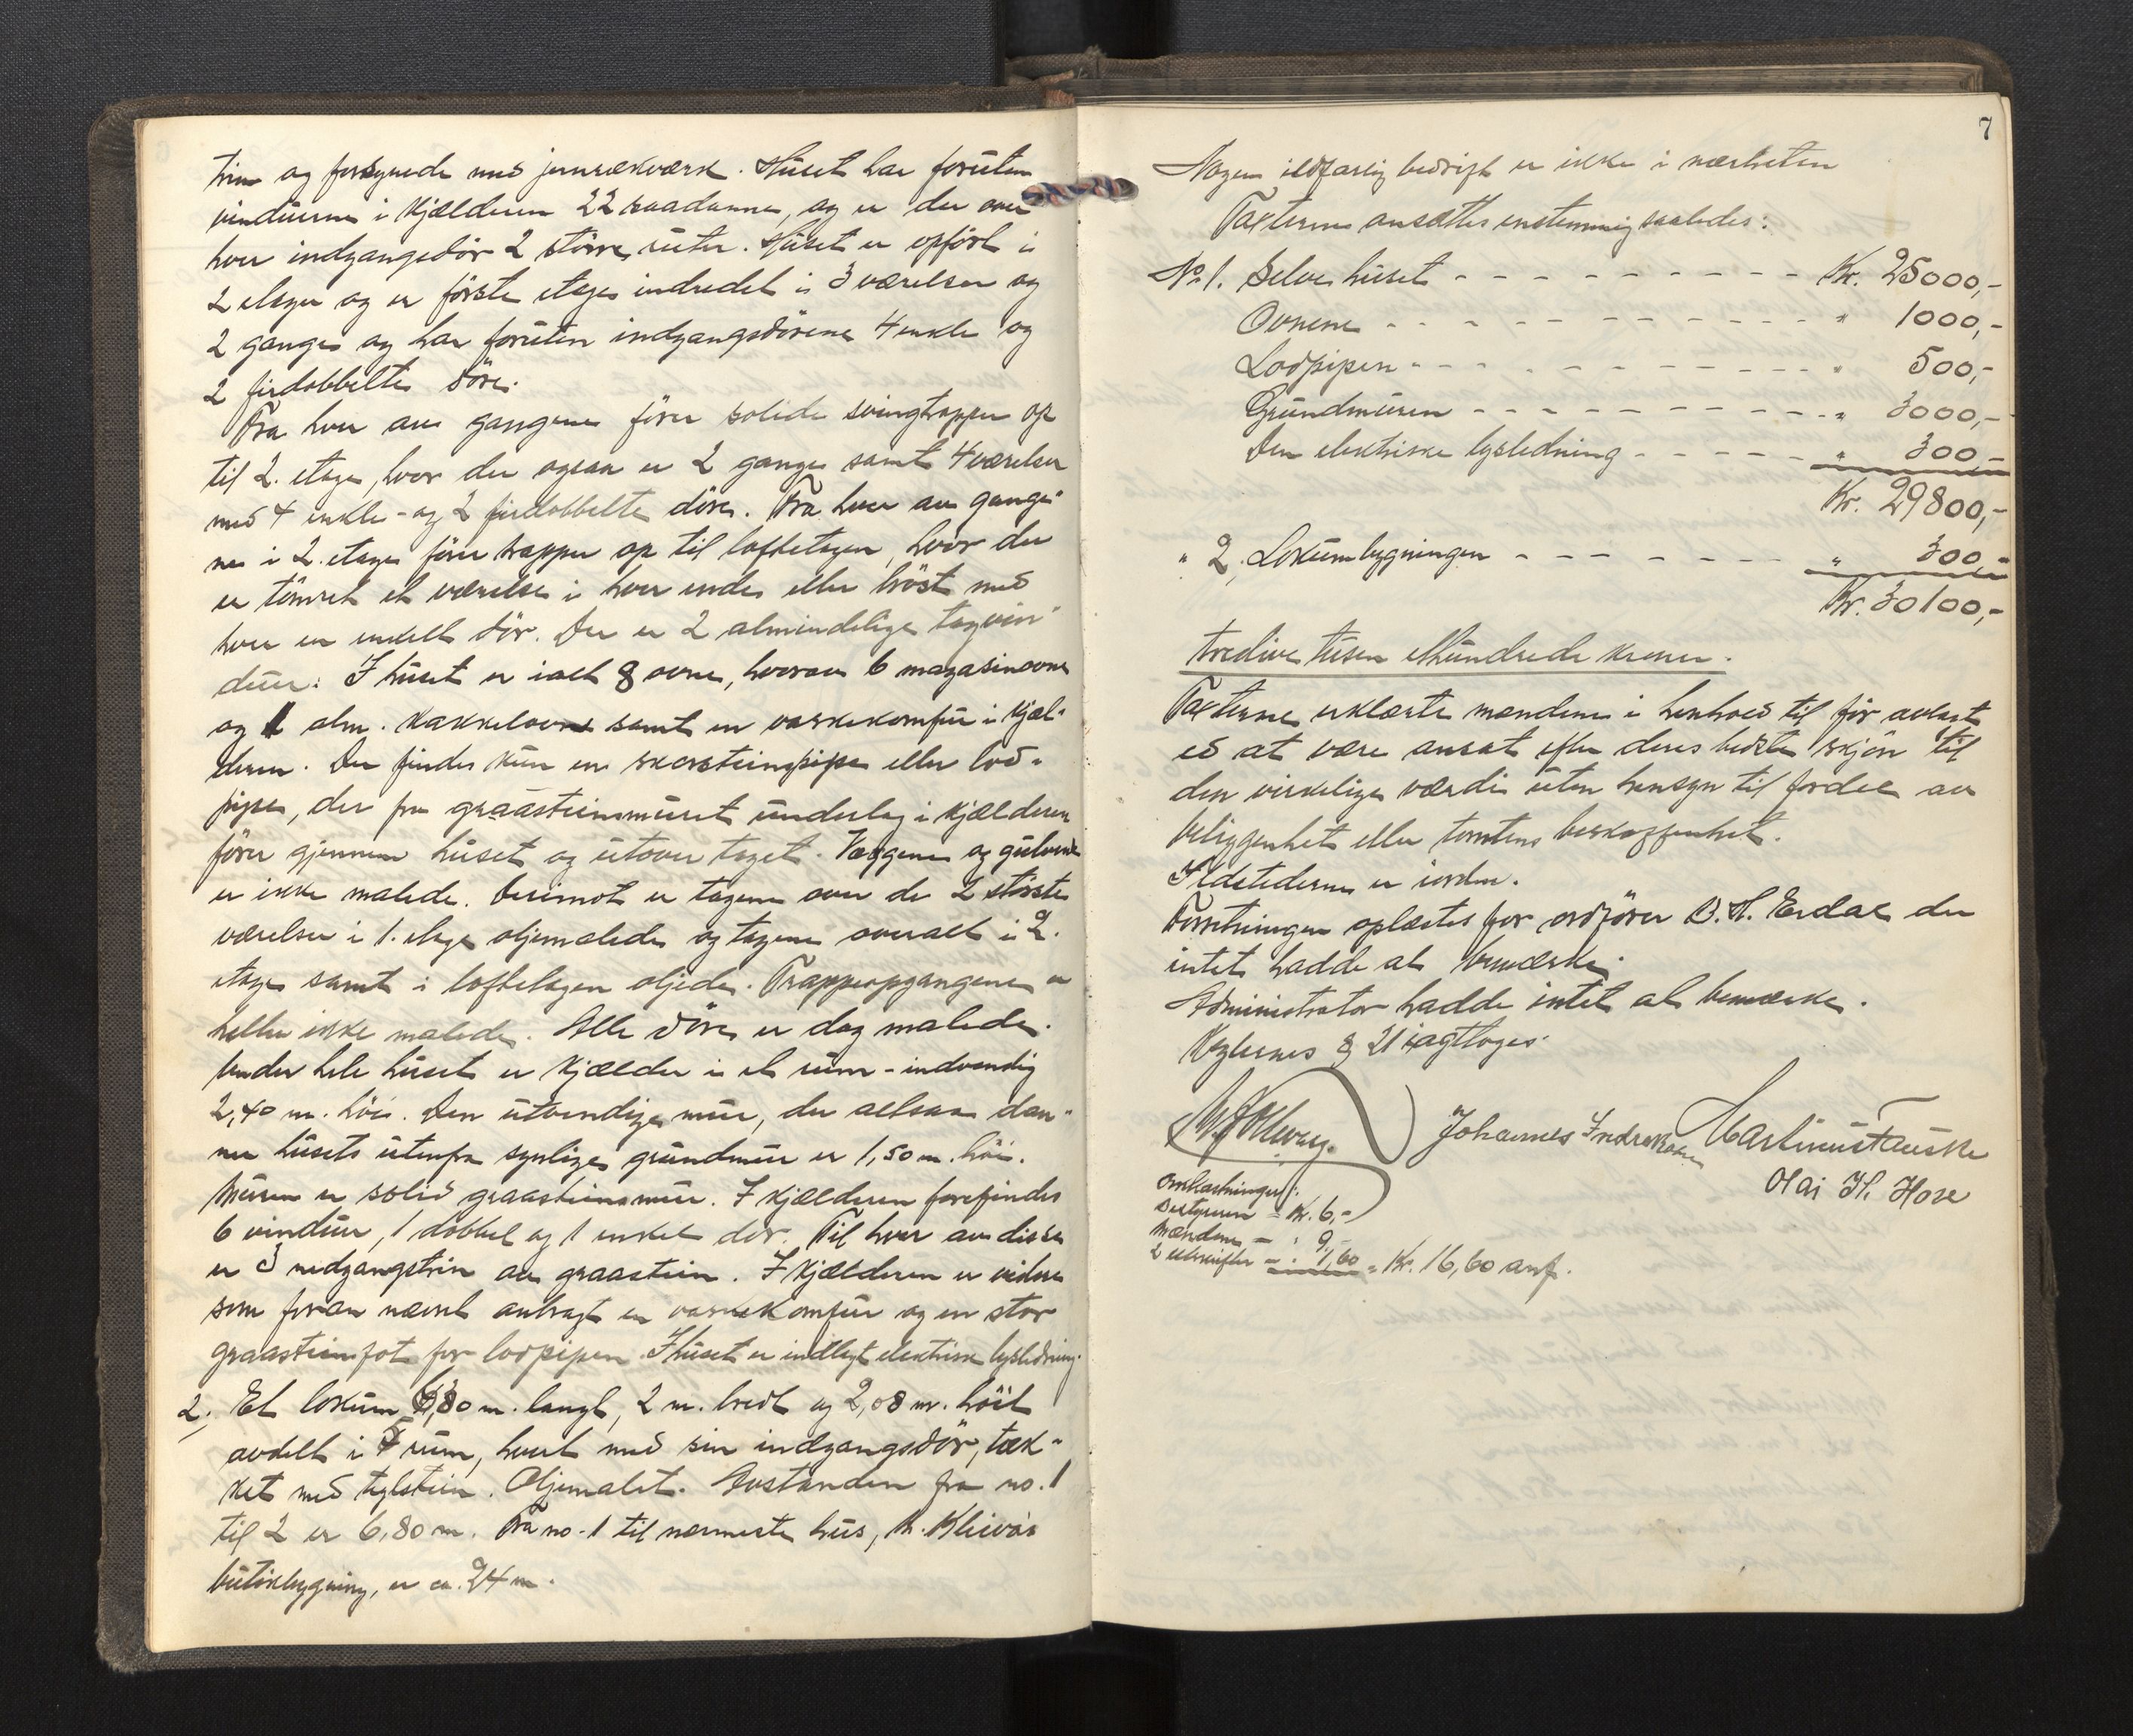 trin og forsynede med jernrækværk. Huset har foruten
vinduerne i kjælderen 22 saadanne, og er der over
hver indgangsdör 2 större ruter. Huset er opfört i
2 etager og er förste etage indredet i 3 værelser og
2 gange og har foruten indgangsdörene 4 enkle og
2 firdobbelte döre.
Fra hver av gangene förer solide svingtrapper op
til 2. etage, hvor der ogsaa er 2 gange samt 4 værelser
med 4 enkle- og 2 firdobbelte döre. Fra hver av gange-
ne i 2. etage förer trapper op til loftetagen, hvor der
er tömret et værelse i hver ende eller bröst med
hver en enkelt dör. Der er 2 almindelige tagvin-
duer. I huset er ialt 8 ovne, hvorav 6 magasinovne
og 1 alm. kakkelovn samt en vaskekomfur i kjæl-
deren. Der findes kun en skorsteinspipe eller lod-
pipe, der fra graasteinsmuret underlag i kjælderen
förer gjennem huset og utover taget. Væggene og gulvene
er ikke malede. Derimot er tagene over de 2 störste
værelser i 1. etage oljemalede og tagene overalt i 2.
etage samt i loftetagen oljede. Trappeopgangene er
heller ikke malede. Alle döre er dog malede.
Under hele huset er kjælder i et rum - indvendig
2,40 m. höi. Den utvendige mur, der altsaa dan-
ner husets utenfra synlige grundmur er 1,50 m. höi.
Muren er solid graasteinsmur. I kjælderen forefindes
6 vinduer, 1 dobbel og 1 enkel dör. Til hver av disse
er 3 nedgangstrin av graastein. I kjælderen er videre
som foran nævnt anbragt en vaskekomfur og en stor
graasteinsfot for lodpipen. I huset er indlagt elektrisk lysledning.
2. Et lokum 6,80 m. langt, 2 m. bredt og 2,08 m. höit
avdelt i 5 rum, hvert med sin indgangsdör, tæk-
ket med teglstein. Oljemalet. Avstanden fra no. 1
til 2 er 6,80 m. Fra no. 1 til nærmeste hus, K. Kleivas
butikbygning, er ca. 24 m.
7
Nogen ildfarlig bedrift er ikke i nærheten
Taxterne ansættes enstemmig saaledes:
No. 1. Selve huset - - - - - - - - - - Kr. 25000,-
Ovnene - - - - - - - - - - - - - " 1000,-
Lodpipen - - - - - - - - - - - - " 500,-
Grundmuren - - - - - - - - - - - " 3000,-
Den elektriske lysledning - - - - - " 300,-
Kr. 29800,-
" 2. Lokumbygningen - - - - - - - " 300,-
Kr. 30100,-
tredive tusen ethundrede kroner.
Taxterne erklærte mændene i henhold til för avlagt
ed at være ansat efter deres bedste skjön til
den virkelige værdi uten hensyn til fordel av
beliggenhet eller tomtens beskaffenhet.
Ildstederne er iorden.
Forretningen oplæstes for ordförer D. H. Erdal der
intet hadde at bemærke.
Administrator hadde intet at bemærke.
Reglernes § 21 iagttoges.
Johannes Fredriksen Martinus Tauske
Olai H. Hose
Omkostninger:
Bestyreren = Kr. 6,-
Mændene - " 9,-
2 utskrifter - " 1,60 = Kr. 16,60 anf.